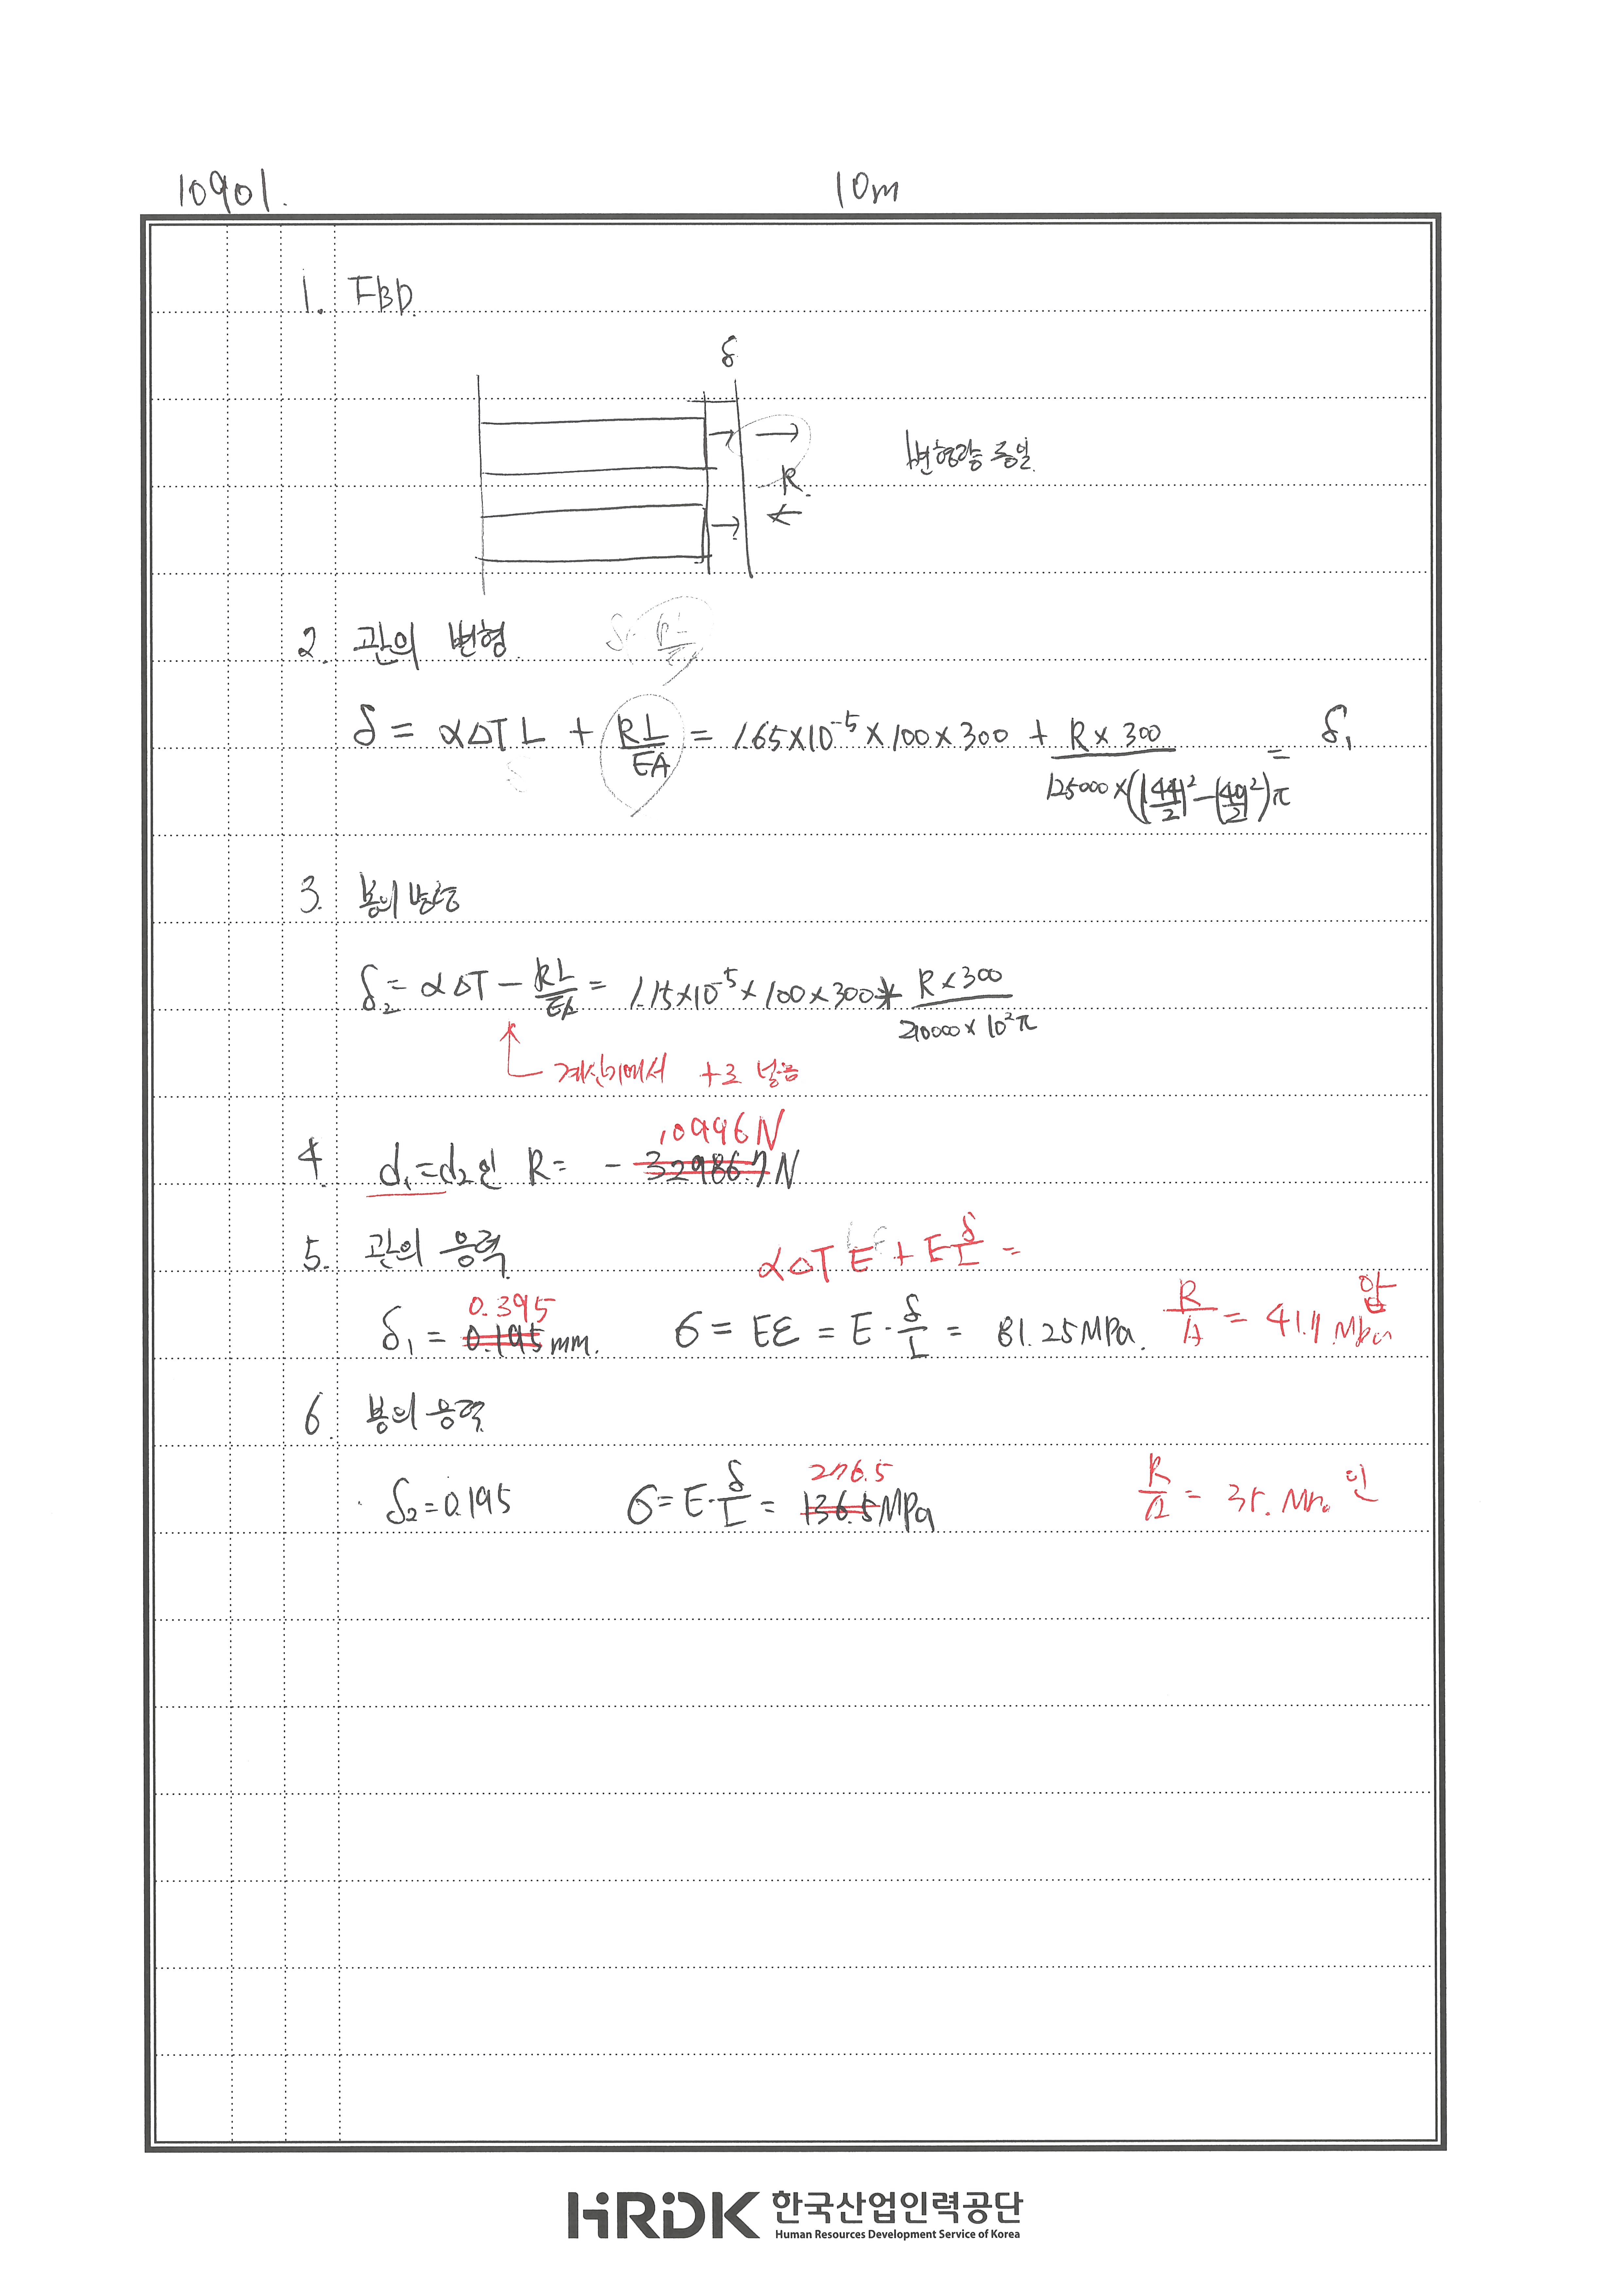 10901.
10m
1. FBD.
δ
변형량 동일.
R.
2. 관의 변형.
δ = α△T L + RL/EA = 1.65×10⁻⁵×100×300 + R×300/125000×((44/2)²-(40/2)²)π = δ₁
3. 봉의 변형
δ₂ = α△T - RL/EA = 1.15×10⁻⁵×100×300 + R×300/210000×10²π
계산기에서 +로 넣음
10996N
4. d₁=d₂인 R= -32986.7N
5. 관의 응력.
α△T E + E δ/L =
0.395
δ₁ = 0.195mm. σ = Eε = E·δ/L = 81.25MPa. R/A = 41.7 Mpa 압
6. 봉의 응력.
276.5
δ₂=0.195 σ=E·δ/L = 136.5MPa R/A = 35. 인
HRDK 한국산업인력공단
Human Resources Development Service of Korea